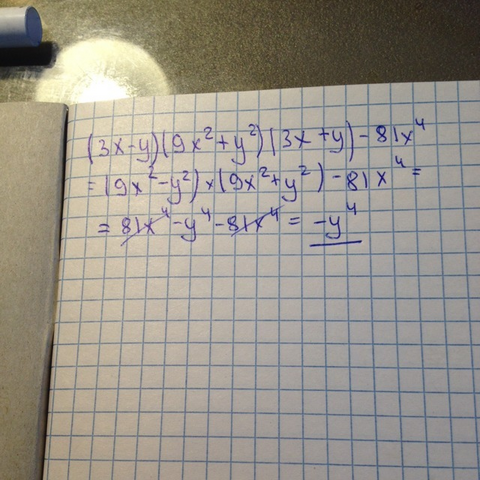 (3x-y)(9x²+y²)(3x+y)-81x⁴
=(9x²-y²)×(9x²+y²)-81x⁴=
=81x⁴-y⁴-81x⁴=-y⁴